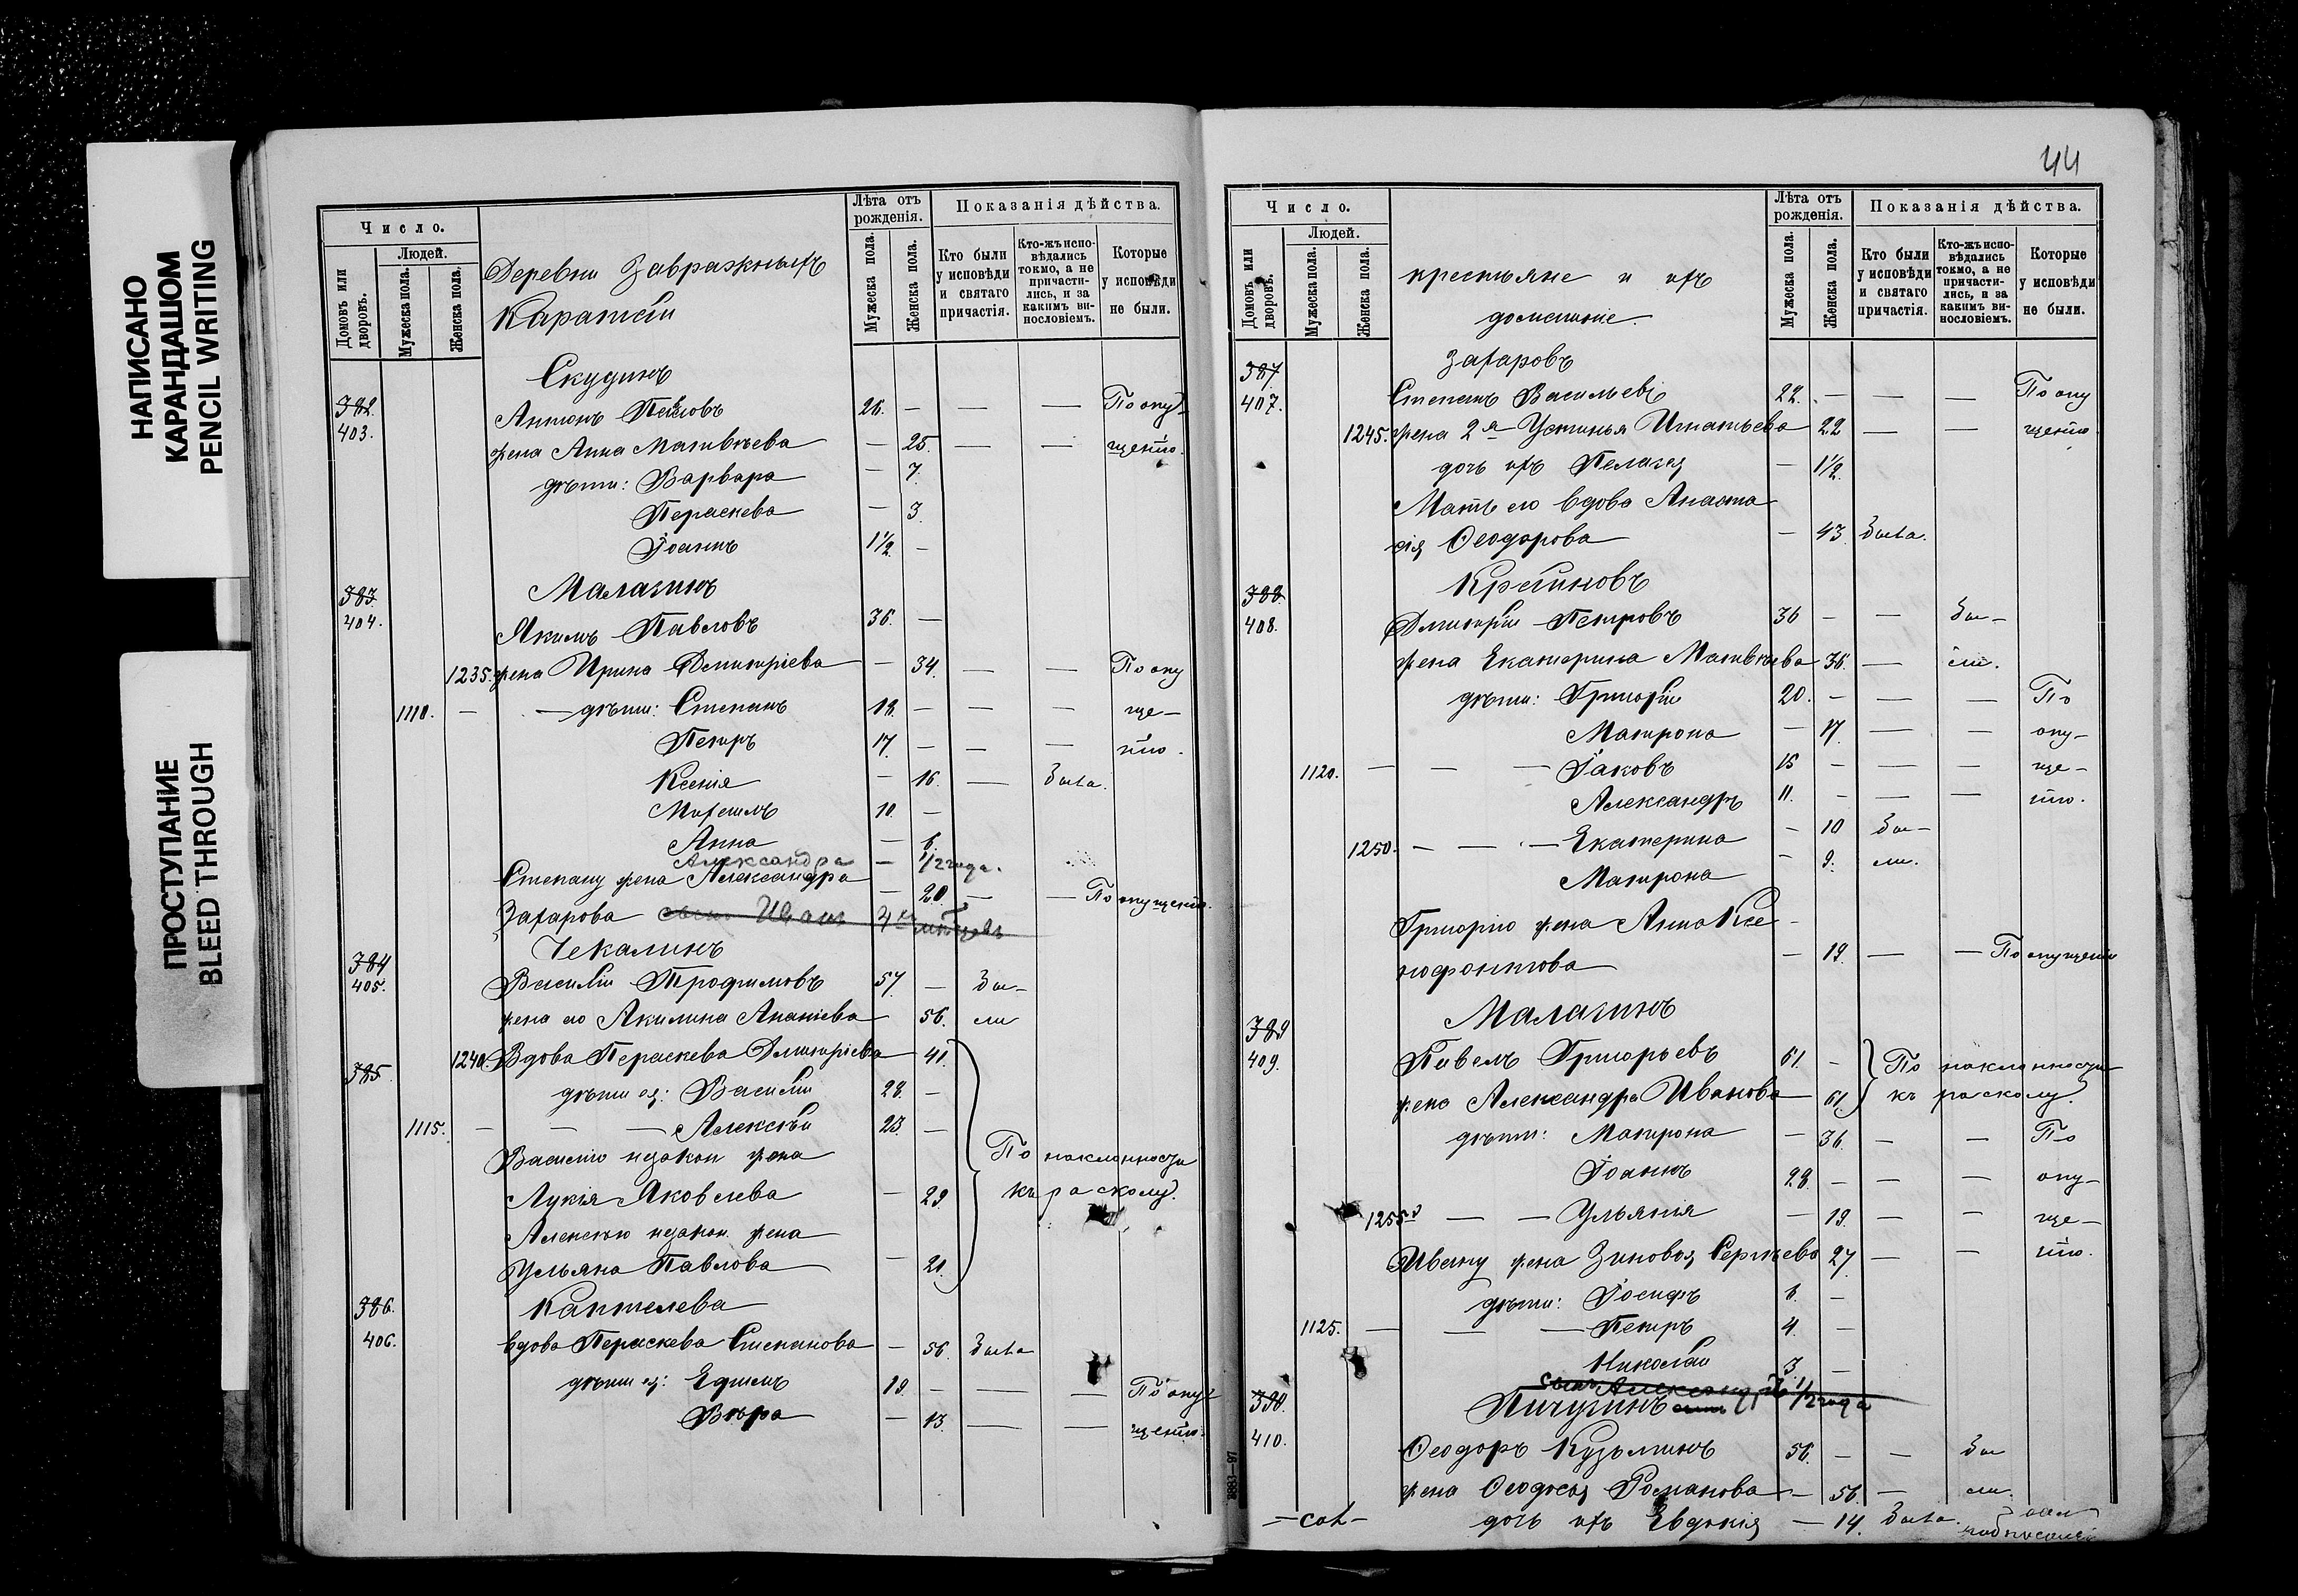 НАПИСАНО
КАРАНДАШОМ
PENCIL WRITING
ПРОСТУПАНИЕ
BLEED THROUGH
Число.
Домовъ или дворовъ.
Людей.
Мужеска пола.
Женска пола.
Деревни Завражныхъ
Каратѣй
Лѣта отъ рожденія.
Мужеска пола.
Женска пола.
Показанія дѣйства.
Кто были у исповѣди и святаго причастія.
Кто-жъ исповѣдались токмо, а не причастились, и за какимъ винословіемъ.
Которые у исповѣди не были.
Скудинъ
382. 403. Антонъ Павловъ 26. — — — По опу-
жена Анна Матвѣева — 25. — — щенію.
дѣти: Варвара — 7.
Параскева — 3.
Іоаннъ 1½. —
Малагинъ
383 404. Якимъ Павловъ 36. —
1235. жена Ирина Димитріева — 34. — — По опу
1110. — — дѣти: Степанъ 18. — — — ще—
Петръ 17. — — — нію.
Ксенія — 16. — Была.
Михаилъ 10. —
Анна — 6.
Александра — 1/2 года.
Степану жена Александра — 20. — — По опущенію.
Захарова сынъ Иванъ
Чекалинъ
384 405. Василій Трофимовъ 57. — Бы—
жена его Акилина Ананіева — 56. ли
385 1240. Вдова Параскева Димитріева 41.
дѣти ея: Василій 28. —
1115. — — — Алексѣй 23. —
Василію незакон жена
Лукія Яковлева — 29.
По наклонности
къ расколу.
Алексѣю незакон. жена
Ульяна Павлова — 20.
386. Каптелева
406. Вдова Параскева Степанова — 56. Была
дѣти ея: Ефимъ 19. — — — По опу
Вѣра — 13. — — щенію.
44
Число.
Домовъ или дворовъ.
Людей.
Мужеска пола.
Женска пола.
крестьяне и ихъ
домашніе.
Лѣта отъ рожденія.
Мужеска пола.
Женска пола.
Показанія дѣйства.
Кто были у исповѣди и святаго причастія.
Кто-жъ исповѣдались токмо, а не причастились, и за какимъ винословіемъ.
Которые у исповѣди не были.
387 Захаровъ
407. Степанъ Васильевъ 22. — — — По опу
1245. жена 2я Устинья Игнатьева 22 — — щенію.
дочь ихъ Пелагея — 1½.
Мать его вдова Анаста
сія Ѳеодорова — 43. Была.
388. Крайновъ
408. Димитрій Петровъ 36 — — Бы—
жена Екатерина Матвѣева 36. — ли.
дѣти: Григорій 20. — — — По
Матрона — 17. — — опу—
1120. — — — Іаковъ 15 — — — ще—
Александръ 11. — — — нію.
1250. — — — Екатерина — 10 Бы—
Матрона — 9. ли.
Григорію жена Анна Ксе
нофонтова — 19. — — По опущенію
Малагинъ
389 409. Павелъ Григорьевъ 61. —
По наклонности
жена Александра Иванова 61
къ расколу.
дѣти: Матрона — 36. — — По
Іоаннъ 28. — — — опу—
1255. — — Ульянія — 19. — — ще—
Ивану жена Зиновья Сергѣева 27 — — нію.
дѣти: Іосифъ 6. —
1125. — — — Петръ 4. —
Николай 3. —
сынъ Алексѣй 1/2 года
390. Пичугинъ
410. Ѳеодоръ Кузьминъ 56. — — Бы
жена Ѳеодосья Романова — 56. — ли.
дочь ихъ Евдокія — 14. Была.